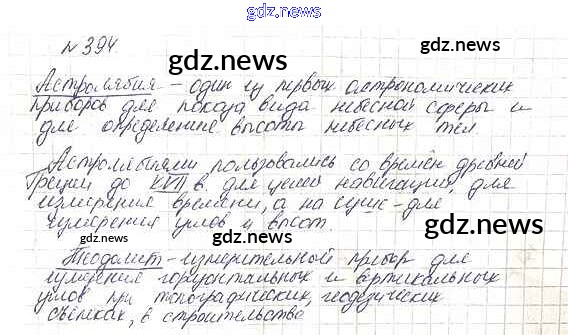 gdz.news
№ 394
gdz.news
gdz.news
Астролябия - один из первых астрономических
приборов для показа вида небесной сферы и
для определение высоты небесных тел.
gdz.news
gdz.news
Астролябиями пользовались со времён древней
Греции до XVII в. для целей навигации, для
измерения времени, а на суше - для
измерения углов и высот.
gdz.news
gdz.news
Теодолит - измерительный прибор для
измерения горизонтальных и вертикальных
углов при топографических, геодезических
съёмках, в строительстве
gdz.news
gdz.news